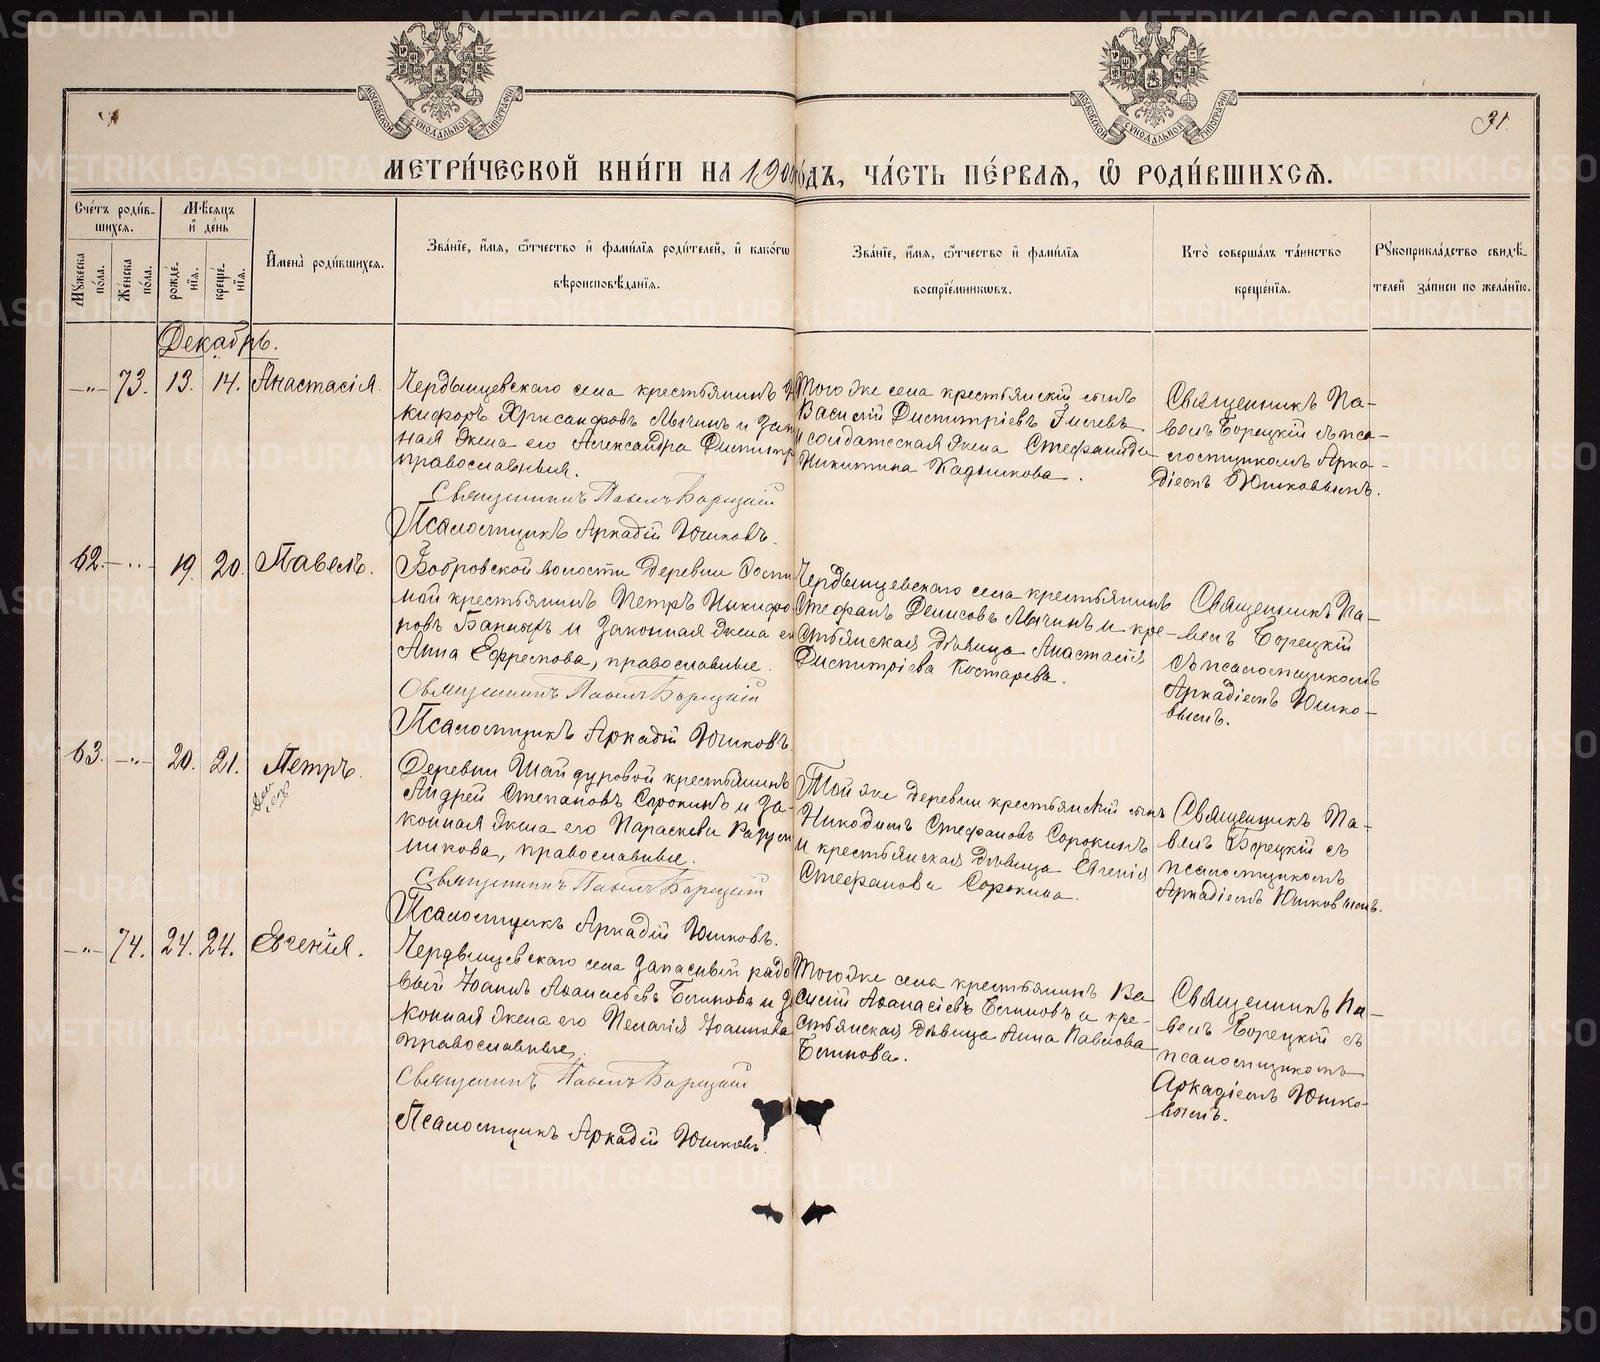 31.
МОСКОВСКОЙ СѴНОДАЛЬНОЙ ТИПОГРАФІИ
МОСКОВСКОЙ СѴНОДАЛЬНОЙ ТИПОГРАФІИ
МЕТРИ́ЧЕСКОЙ КНИ́ГИ НА 190 го́дъ, ЧА́СТЬ ПЕ́РВАѦ, Ѡ҆ РОДИ́ВШИХСѦ.
Сче́тъ роди́в-
шихсѧ.
Мꙋжеска по́ла.
Женска по́ла.
Мѣ́сѧцъ
и҆ де́нь
рожде́-
нїѧ.
креще́-
нїѧ.
И҆мена̀ роди́вшихсѧ.
Зва́нїе, и҆́мѧ, ѻ҆́тчество и҆ фами́лїѧ роди́телей, и҆ како́гѡ
вѣроисповѣ́данїѧ.
Зва́нїе, и҆́мѧ, ѻ҆́тчество и҆ фами́лїѧ
воспрїе́мникѡвъ.
Кто̀ соверша́лъ та́инство
креще́нїѧ.
Рꙋкоприкла́дство свидѣ́-
телей за́писи по жела́нїю.
Декабрь.
—„— 73. 13. 14. Анастасія.
Чердынцевскаго села крестьянинъ Ни
кифоръ Хрисанфовъ Мычинъ и закон
ная жена его Александра Димитр
православныя.
Священникъ Павелъ Борецкій
Псаломщикъ Аркадій Юшковъ.
Того же села крестьянскій сынъ
Василій Димитріевъ
и солдатская жена Стефанида
Никитина Кадникова.
Священникъ Па-
велъ Борецкій съ пса-
ломщикомъ Арка-
діемъ Юшковымъ.
62. —„— 19. 20. Павелъ.
Бобровской волости деревни
ной крестьянинъ Петръ Никифо
ровъ Банныхъ и законная жена ег
Анна Ефремова, православные.
Священникъ Павелъ Борецкій
Псаломщикъ Аркадій Юшковъ.
Чердынцевскаго села крестьянинъ
Стефанъ Денисовъ Мычинъ и кре-
стьянская дѣвица Анастасія
Димитріева Костарева.
Священникъ Па-
велъ Борецкій
съ псаломщикомъ
Аркадіемъ Юшко-
вымъ.
63. —„— 20. 21. Петръ.
Деревни Шайдуровой крестьянинъ
Андрей Степановъ Сорокинъ и за-
конная жена его Параскева
никова, православные.
Священникъ Павелъ Борецкій
Псаломщикъ Аркадій Юшковъ.
Той же деревни крестьянскій сынъ
Никодимъ Стефановъ Сорокинъ
и крестьянская дѣвица Евгенія
Стефанова Сорокина.
Священникъ Па-
велъ Борецкій съ
псаломщикомъ
Аркадіемъ Юшковымъ.
—„— 74. 24. 24. Евгенія.
Чердынцевскаго села запасный рядо
вый Іоаннъ Аѳанасьевъ и за
конная жена его Пелагія Іоаннова
православные.
Священникъ Павелъ Борецкій
Псаломщикъ Аркадій Юшковъ.
Того же села крестьянинъ Ва
силій Аѳанасіевъ и кре-
стьянская дѣвица Анна Павлова
Священникъ Па-
велъ Борецкій съ
псаломщикомъ
Аркадіемъ Юшко-
вымъ.
METRIKI.GASO-URAL.RU